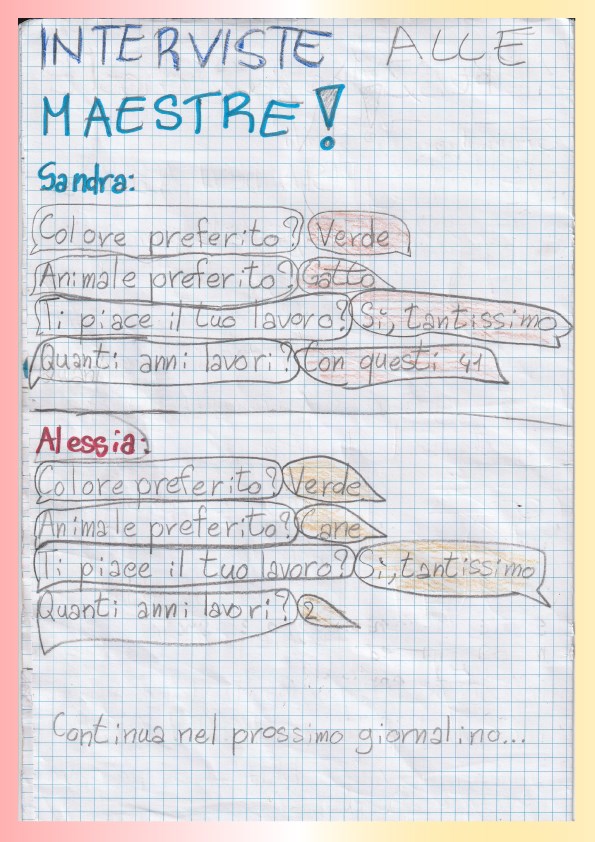 INTERVISTE ALLE
MAESTRE!
Sandra:
Colore preferito? Verde
Animale preferito? Gatto
Ti piace il tuo lavoro? Sì, tantissimo
Quanti anni lavori? Con questi 41
Alessia:
Colore preferito? Verde
Animale preferito? Cane
Ti piace il tuo lavoro? Sì, tantissimo
Quanti anni lavori? 2
Continua nel prossimo giornalino...